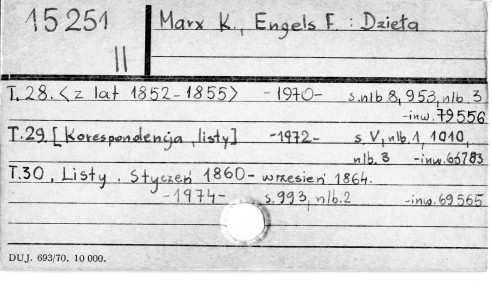 15251 Marx K., Engels F. : Dzieła
II
T. 28. <z lat 1852-1855> -1970- s.nlb 8, 953, nlb. 3
-inw. 79556
T. 29. [Korespondencja, listy] -1972- s. V, nlb. 1, 1010,
nlb. 3 -inw. 66783
T. 30. Listy. Styczeń 1860- wrzesień 1864.
-1974- s. 993, nlb. 2 -inw. 69565
DUJ. 693/70. 10 000.